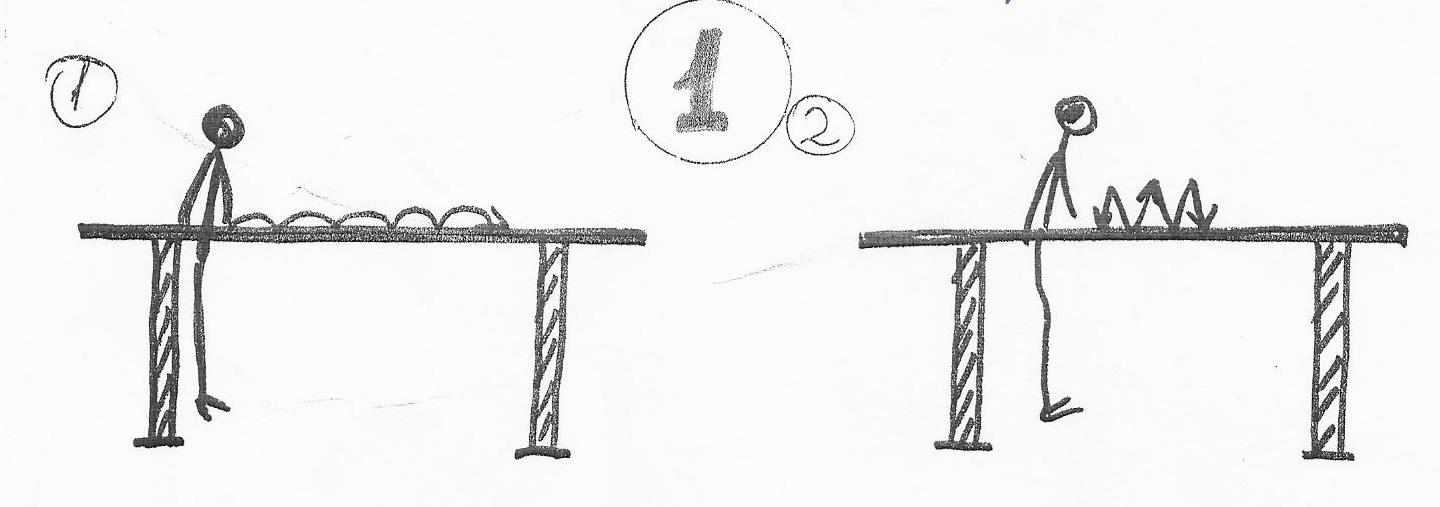 1
1
2